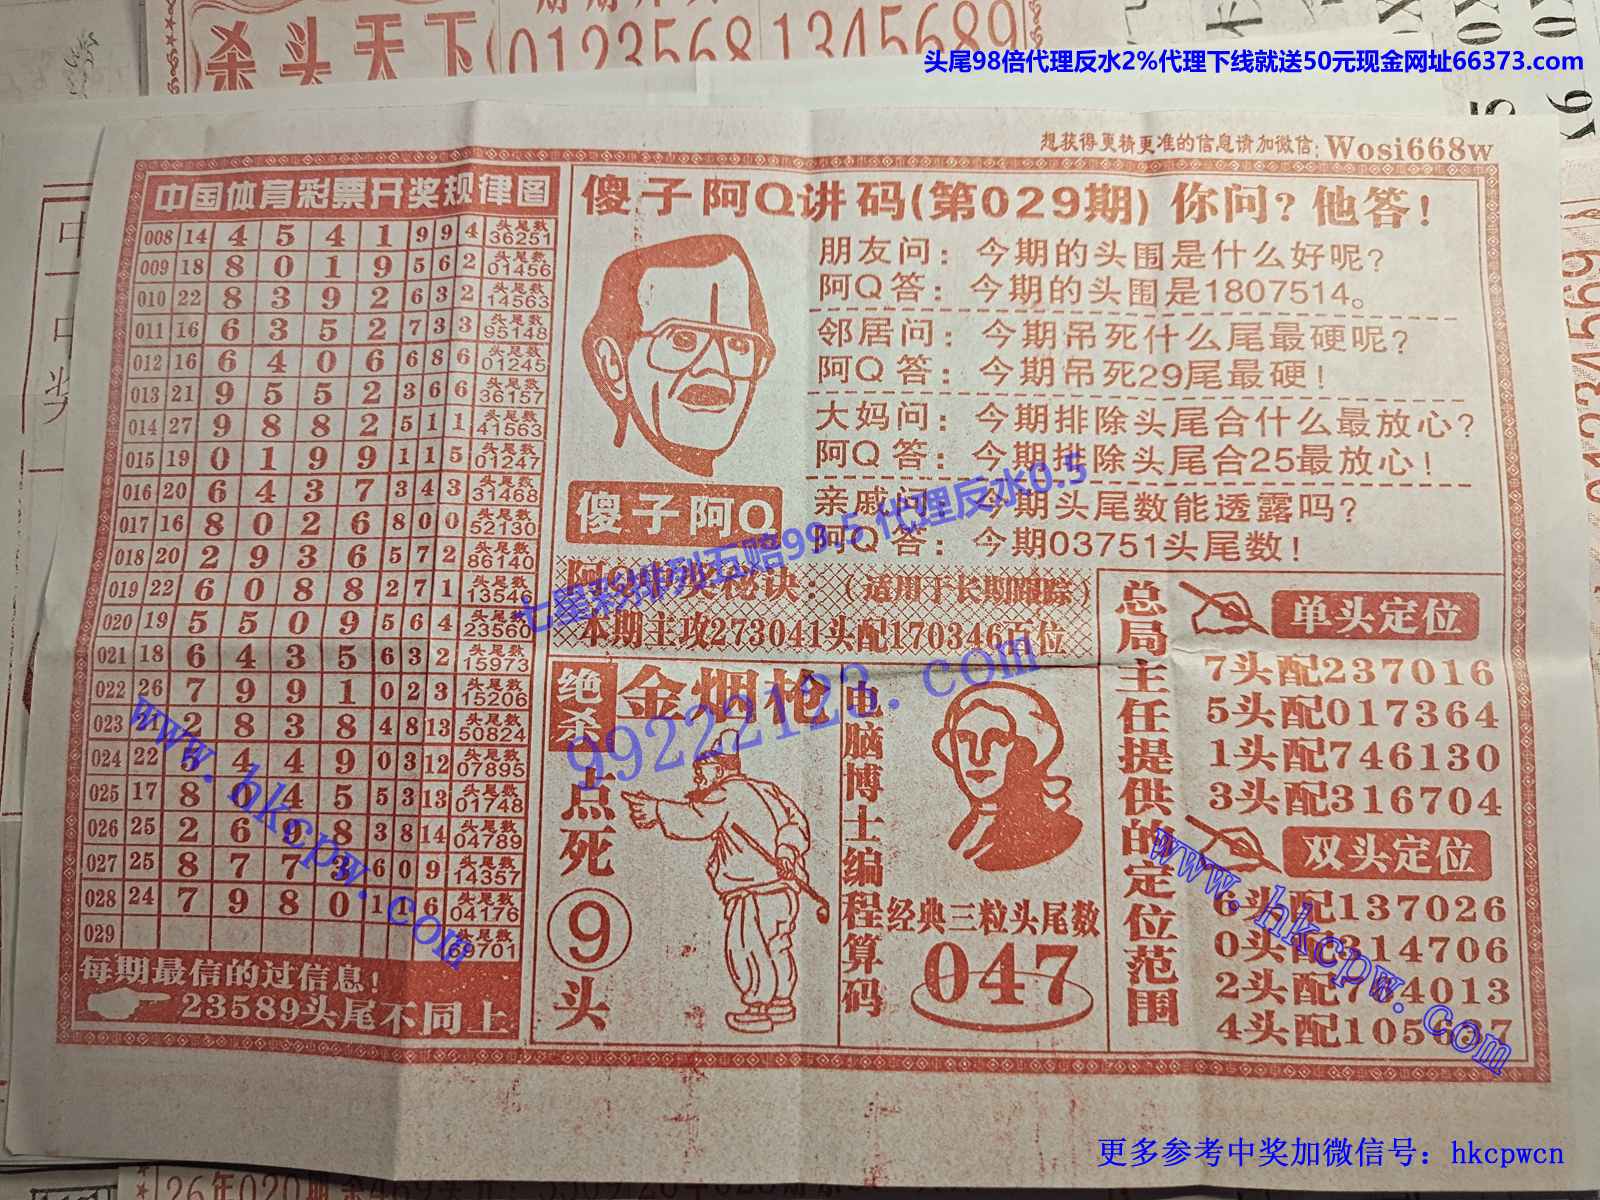 杀头天下
01235681345689
头尾98倍代理反水2%代理下线就送50元现金网址66373.com
想获得更精更准的信息请加微信:Wosi668w
中国体育彩票开奖规律图
008 14 4 5 4 1 9 9 4 头尾数 36251
009 18 8 0 1 9 5 6 2 头尾数 01456
010 22 8 3 9 2 6 3 2 头尾数 14563
011 16 6 3 5 2 7 3 3 头尾数 95148
012 16 6 4 0 6 6 8 6 头尾数 01245
013 21 9 5 5 2 3 6 6 头尾数 36157
014 27 9 8 8 2 5 1 1 头尾数 41563
015 19 0 1 9 9 1 1 5 头尾数 01247
016 20 6 4 3 7 3 4 3 头尾数 31468
017 16 8 0 2 6 8 0 0 头尾数 52130
018 20 2 9 3 6 5 7 2 头尾数 86140
019 22 6 0 8 8 2 7 1 头尾数 13546
020 19 5 5 0 9 5 6 4 头尾数 23560
021 18 6 4 3 5 6 3 2 头尾数 15973
022 26 7 9 9 1 0 2 3 头尾数 15206
023 2 8 3 8 4 8 13 头尾数 50824
024 22 5 4 4 9 0 3 12 头尾数 07895
025 17 8 0 4 5 5 3 13 头尾数 01748
026 25 2 6 9 8 3 8 14 头尾数 04789
027 25 8 7 7 3 6 0 9 头尾数 14357
028 24 7 9 8 0 1 1 6 头尾数 04176
029 头尾数 69701
每期最信的过信息!
23589头尾不同上
傻子阿Q讲码(第029期)你问?他答!
朋友问:今期的头围是什么好呢?
阿Q答:今期的头围是1807514。
邻居问:今期吊死什么尾最硬呢?
阿Q答:今期吊死29尾最硬!
大妈问:今期排除头尾合什么最放心?
阿Q答:今期排除头尾合25最放心!
亲戚问:今期头尾数能透露吗?
阿Q答:今期03751头尾数!
傻子阿Q
阿Q中奖秘诀:(适用于长期跟踪)
本期主攻273041头配170346百位
七星彩排列五赔99.5 代理反水0.5
99222123.com
绝杀
金烟枪
点死⑨头
电脑博士编程算码
经典三粒头尾数
047
总局主任提供的定位范围
单头定位
7头配237016
5头配017364
1头配746130
3头配316704
双头定位
6头配137026
0头配314706
2头配784013
4头配105637
www.hkcpw.com
www.hkcpw.com
更多参考中奖加微信号:hkcpwcn